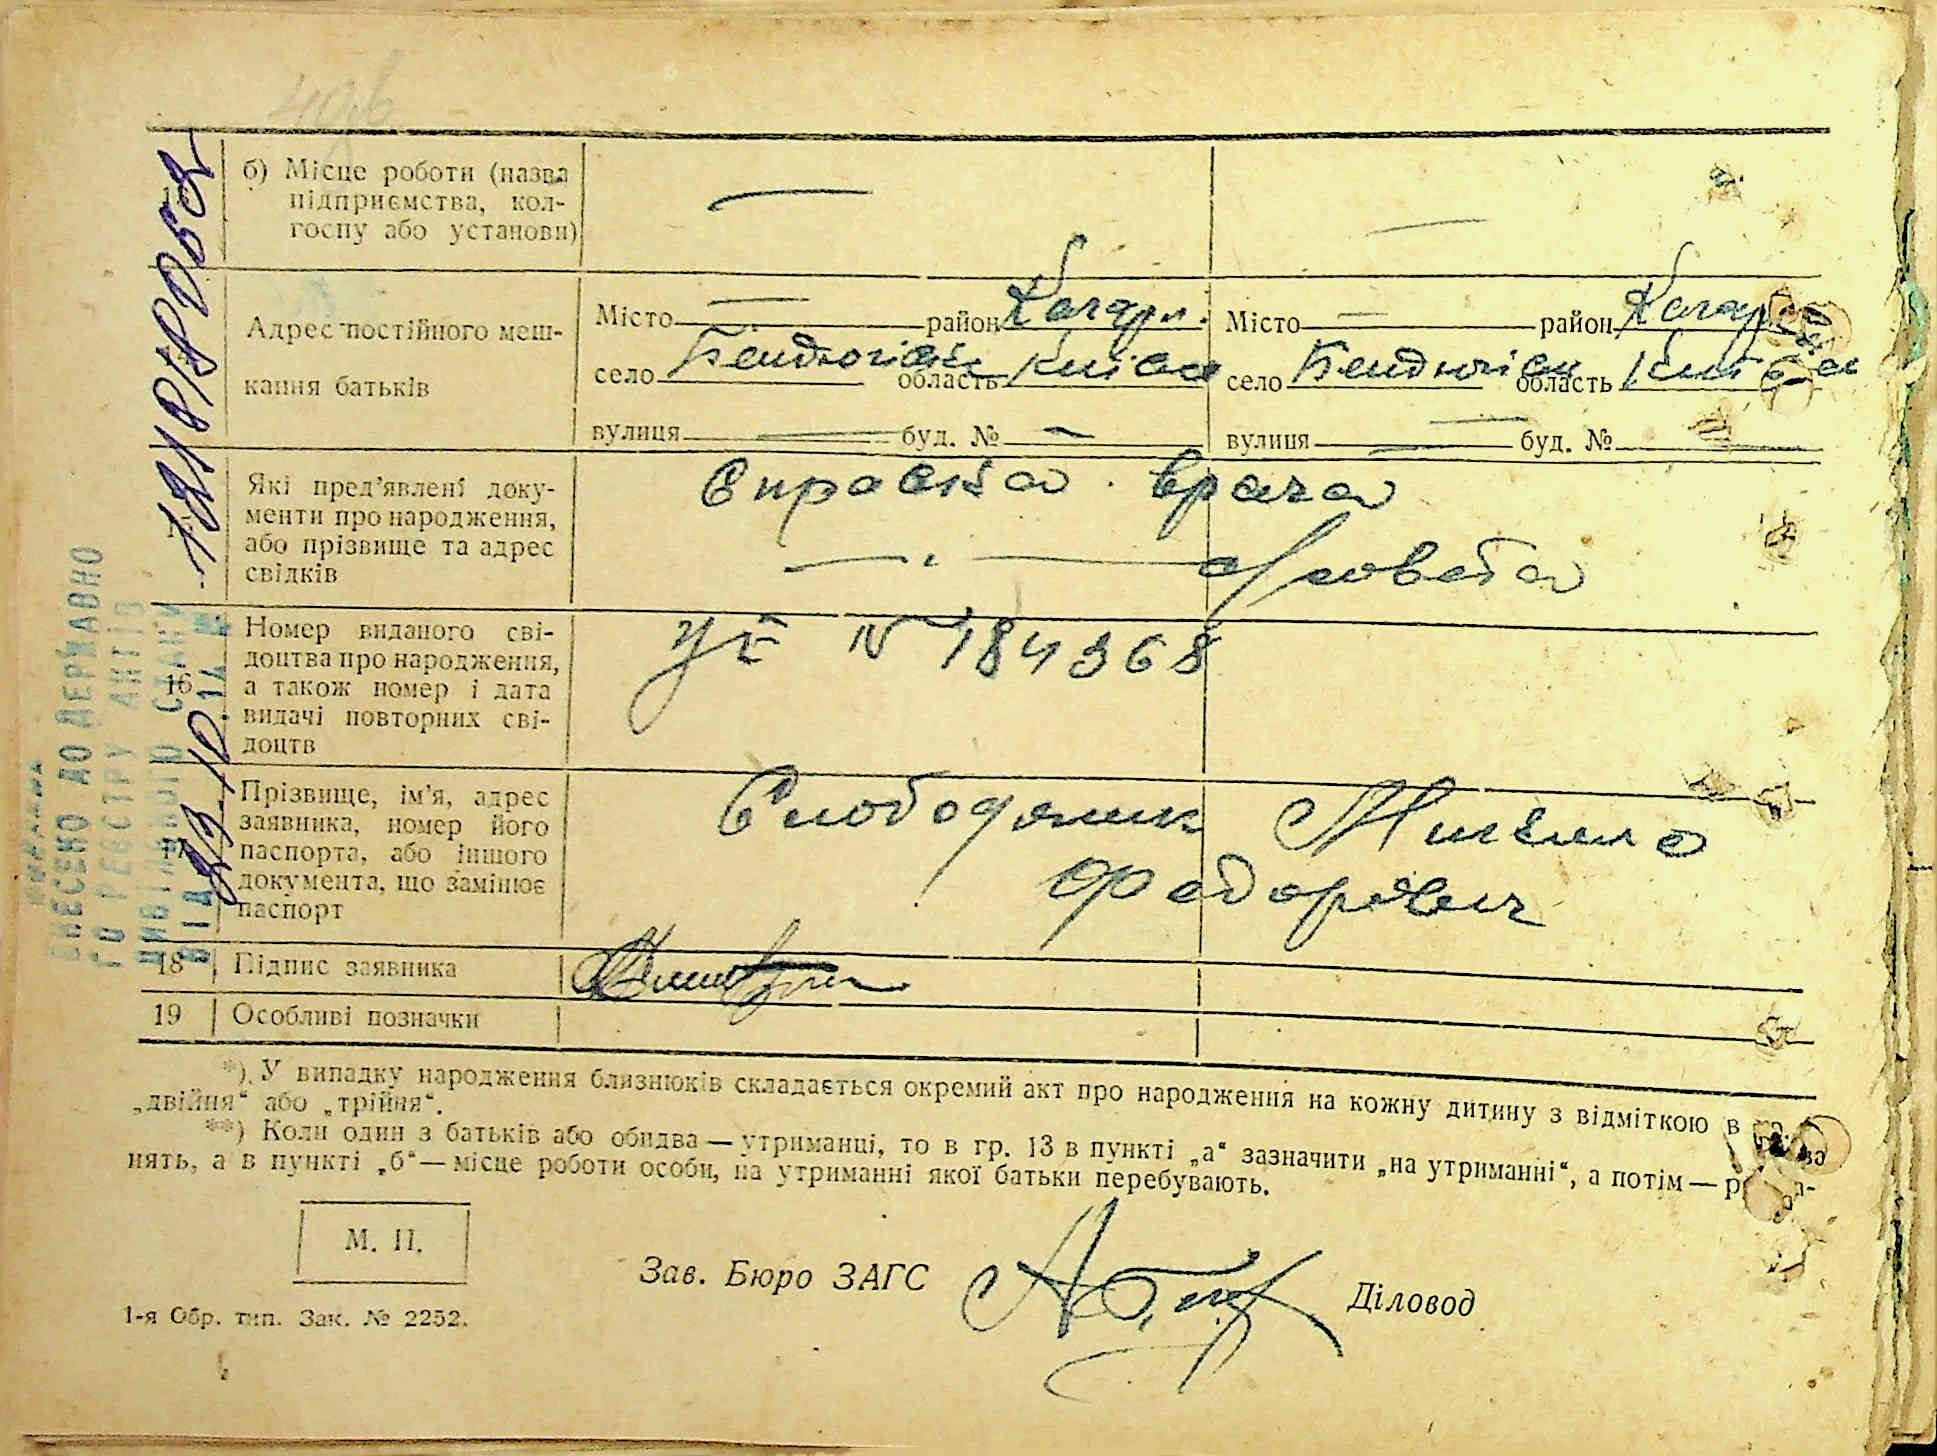 б) Місце роботи (назва
підприємства, кол-
госпу або установи)
Адрес постійного меш-
кання батьків
Місто район Кагарл.
село Бендюгівк область Київск
вулиця буд. №
Місто район Кагар
село Бендюгівк область Київск
вулиця буд. №
Які пред'явлені доку-
менти про народження,
або прізвище та адрес
свідків
Справка врача
16
Номер виданого сві-
доцтва про народження,
а також номер і дата
видачі повторних сві-
доцтв
№ 184368
17
Прізвище, ім'я, адрес
заявника, номер його
паспорта, або іншого
документа, що замінює
паспорт
Слободяник
Федорович
18 Підпис заявника
19 Особливі позначки
*) У випадку народження близнюків складається окремий акт про народження на кожну дитину з відміткою в
„двійня“ або „трійня“.
**) Коли один з батьків або обидва — утриманці, то в гр. 13 в пункті „а“ зазначити „на утриманні“, а потім —
нять, а в пункті „б“ — місце роботи особи, на утриманні якої батьки перебувають.
М. П.
Зав. Бюро ЗАГС
Діловод
1-я Обр. тип. Зак. № 2252.
ВНЕСЕНО ДО ДЕРЖАВНО
ГО РЕЄСТРУ АКТІВ
ЦИВІЛЬНОГО СТАНУ
ВІД